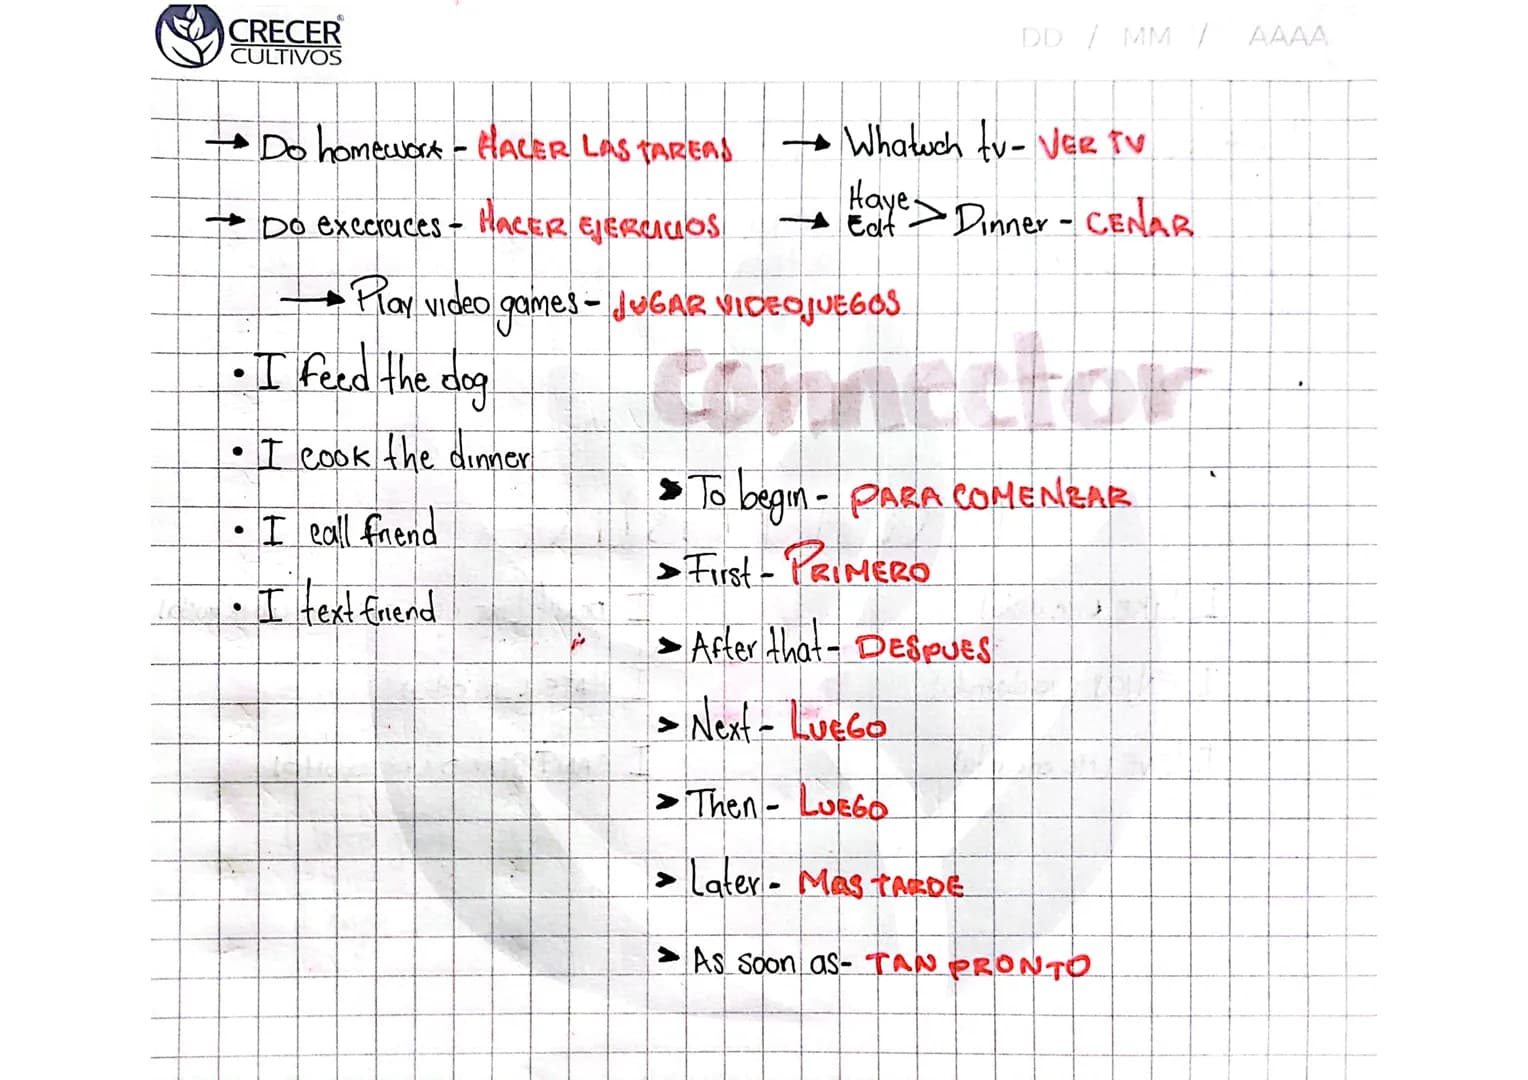 CRECER®
CULTIVOS
DD / MM / AAAA
→ Do homework - HACER LAS TAREAS
→ Whatwch tv - VER TV
→ Do excercices - HACER EJERCICIOS
→ Have
Eat > Dinner - CENAR
→ Play video games - JUGAR VIDEOJUEGOS
• I feed the dog
Connector
• I cook the dinner
➤ To begin - PARA COMENZAR
• I call friend
➤ First - PRIMERO
• I text friend
➤ After that - DESPUES
➤ Next - LUEGO
➤ Then - LUEGO
➤ Later - MAS TARDE
➤ As soon as - TAN PRONTO